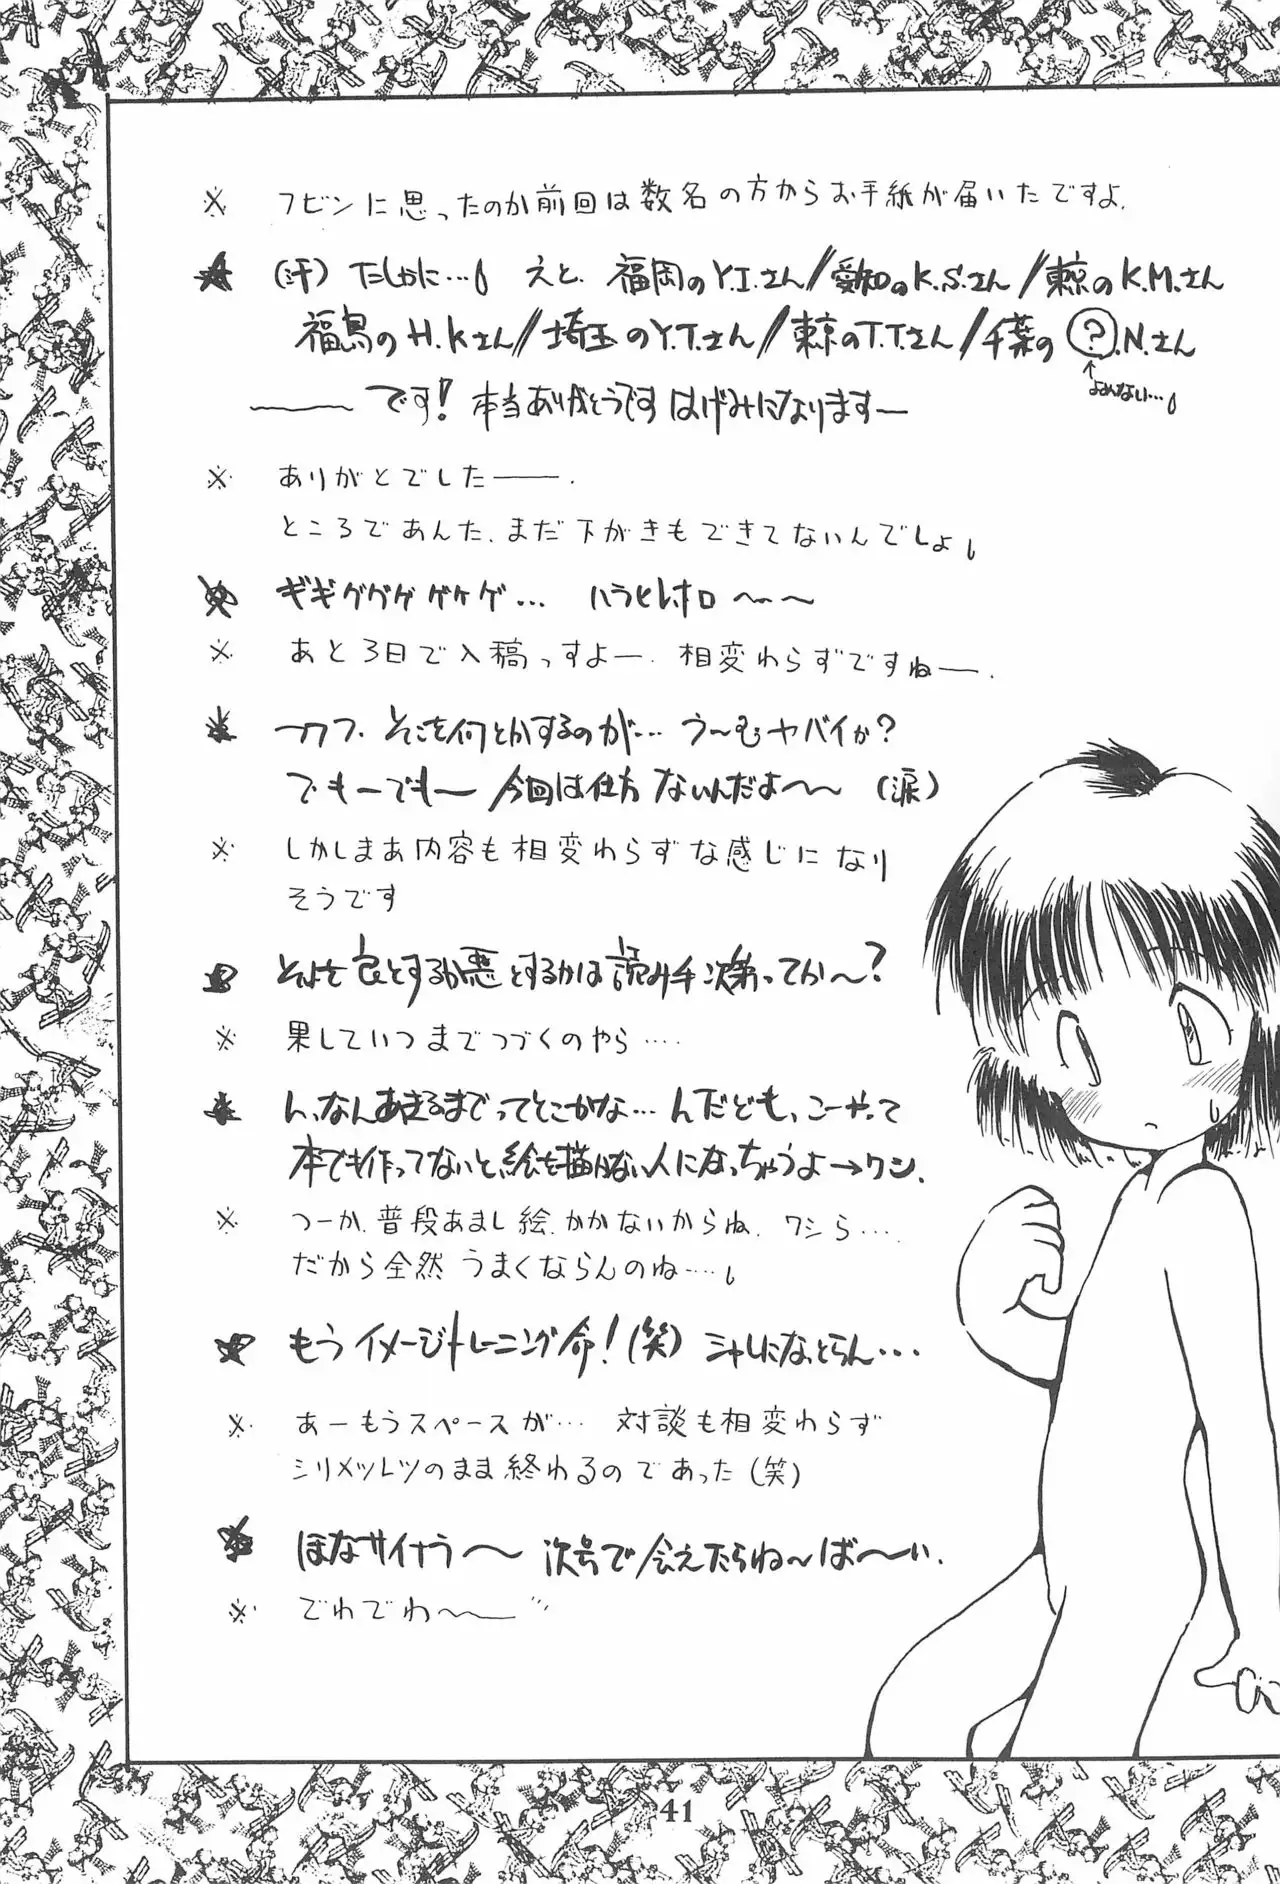 ※ フビンに思ったのか前回は数名の方からお手紙が届いたですよ.
★ (汗) たしかに…。 えと、福岡のY.I.さん//愛知のK.S.さん//東京のK.M.さん
福島のH.Kさん//埼玉のY.T.さん//東京のT.T.さん//千葉の?.N.さん
↑よめない…。
――です! 本当ありがとうです はげみになりますー
※ ありがとでしたー――.
ところであんた、まだ下がきもできてないんでしょ。
★ ギギググゲゲケゲ… ハラヒレホロ〜〜
※ あと3日で入稿っすよー. 相変わらずですねー.
★ フフフ、そこを何とかするのが… う〜むヤバイか?
でもーでもー 今回は仕方ないんだよ〜〜 (涙)
※ しかしまあ内容も相変わらずな感じになり
そうです
★ それを良とするか悪とするかは読み手次第ってか〜?
※ 果していつまでつづくのやら….
★ ん、なんあきるまでってとこかな… んだども、こーやって
本でも作ってないと、絵も描けない人になっちゃうよ→ワシ.
※ つーか、普段あまし絵、かかないからね. ワシら….
だから全然うまくならんのねー…。
★ もうイメージトレーニング命!(笑) シャレになっとらん…
※ あーもうスペースが… 対談も相変わらず
シリメツレツのまま、終わるのであった(笑)
★ ほなサイナラ〜 次号で会えたらね〜ば〜い.
※ でわでわ〜――
41